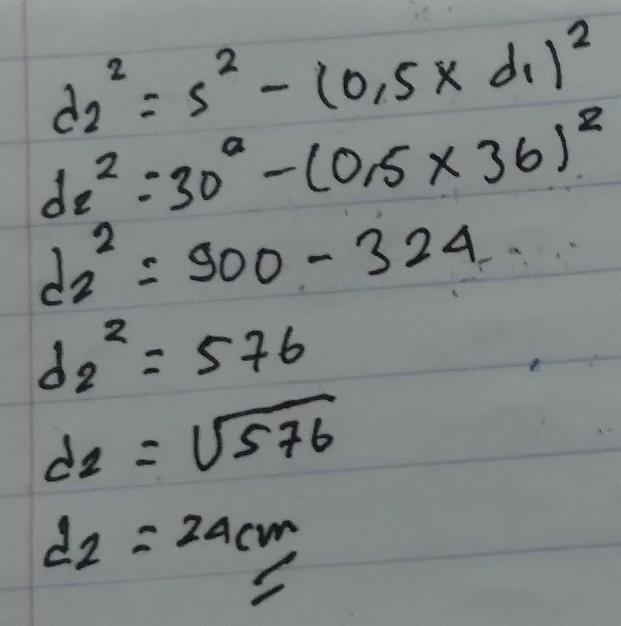 d₂² = s² - (0,5 × d₁)²
d₂² = 30² - (0,5 × 36)²
d₂² = 900 - 324
d₂² = 576
d₂ = √576
d₂ = 24 cm